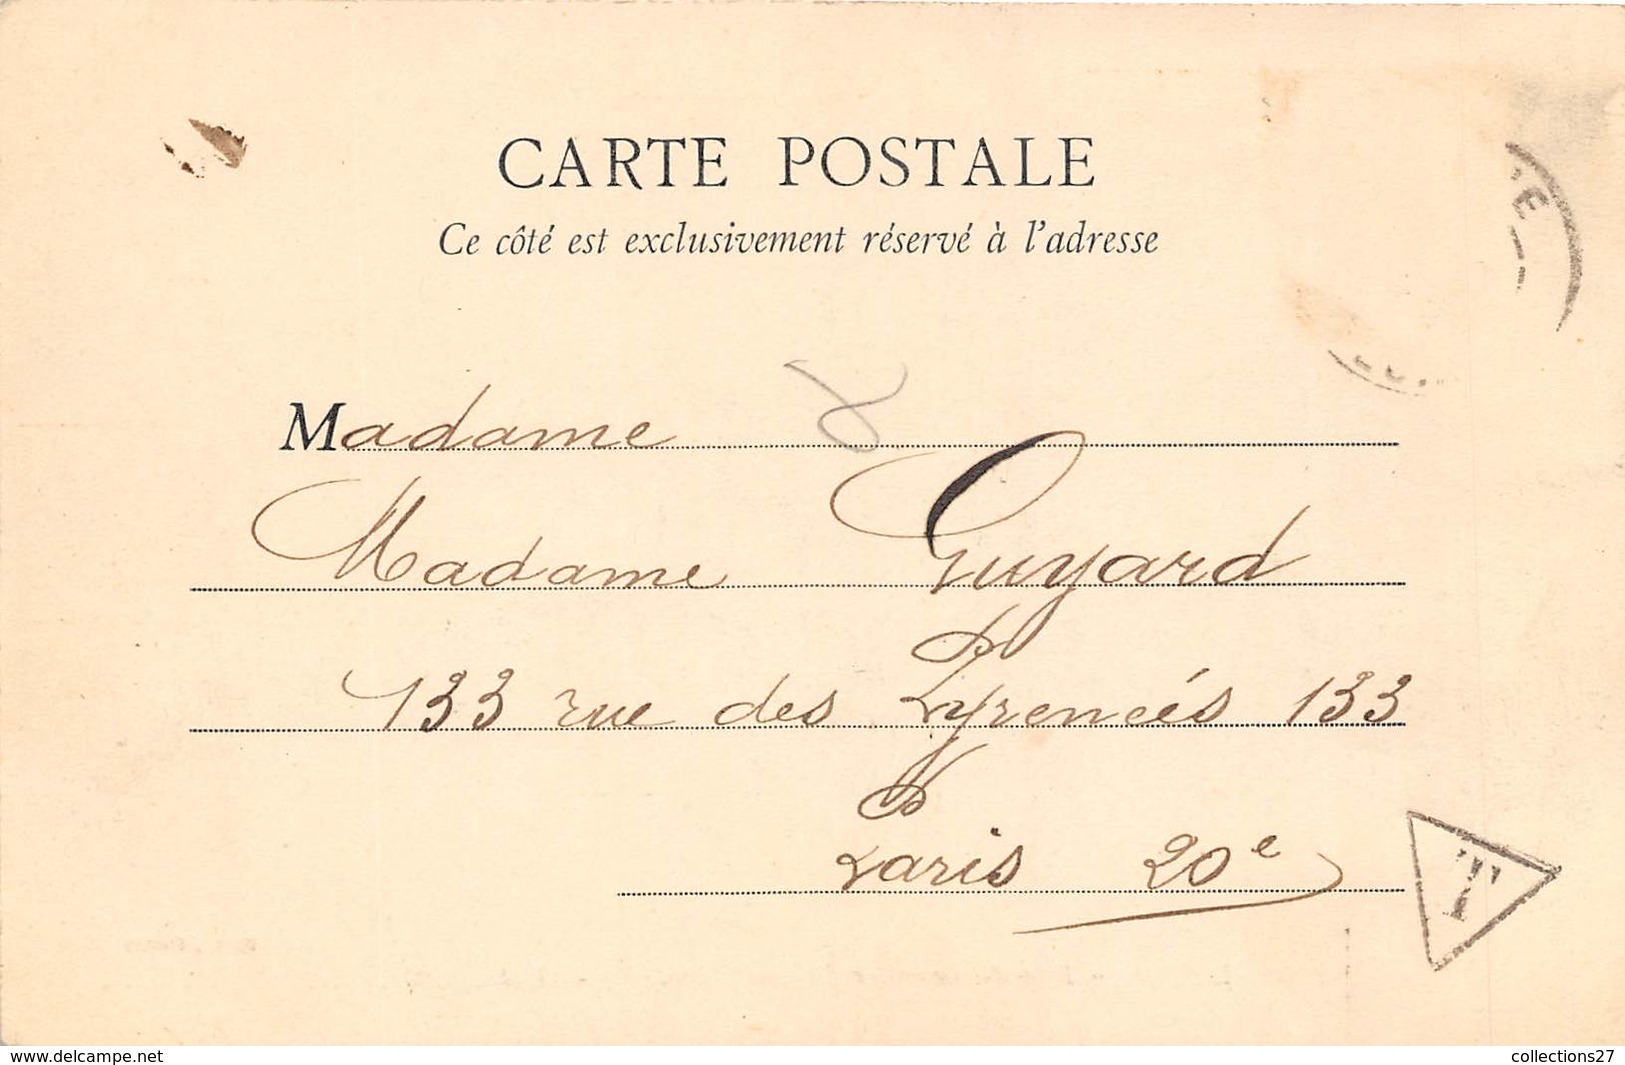 CARTE POSTALE
Ce côté est exclusivement réservé à l'adresse
Madame
Madame Guyard
133 rue des Pyrenées 133
Paris 20e
T
www.delcampe.net
collections27